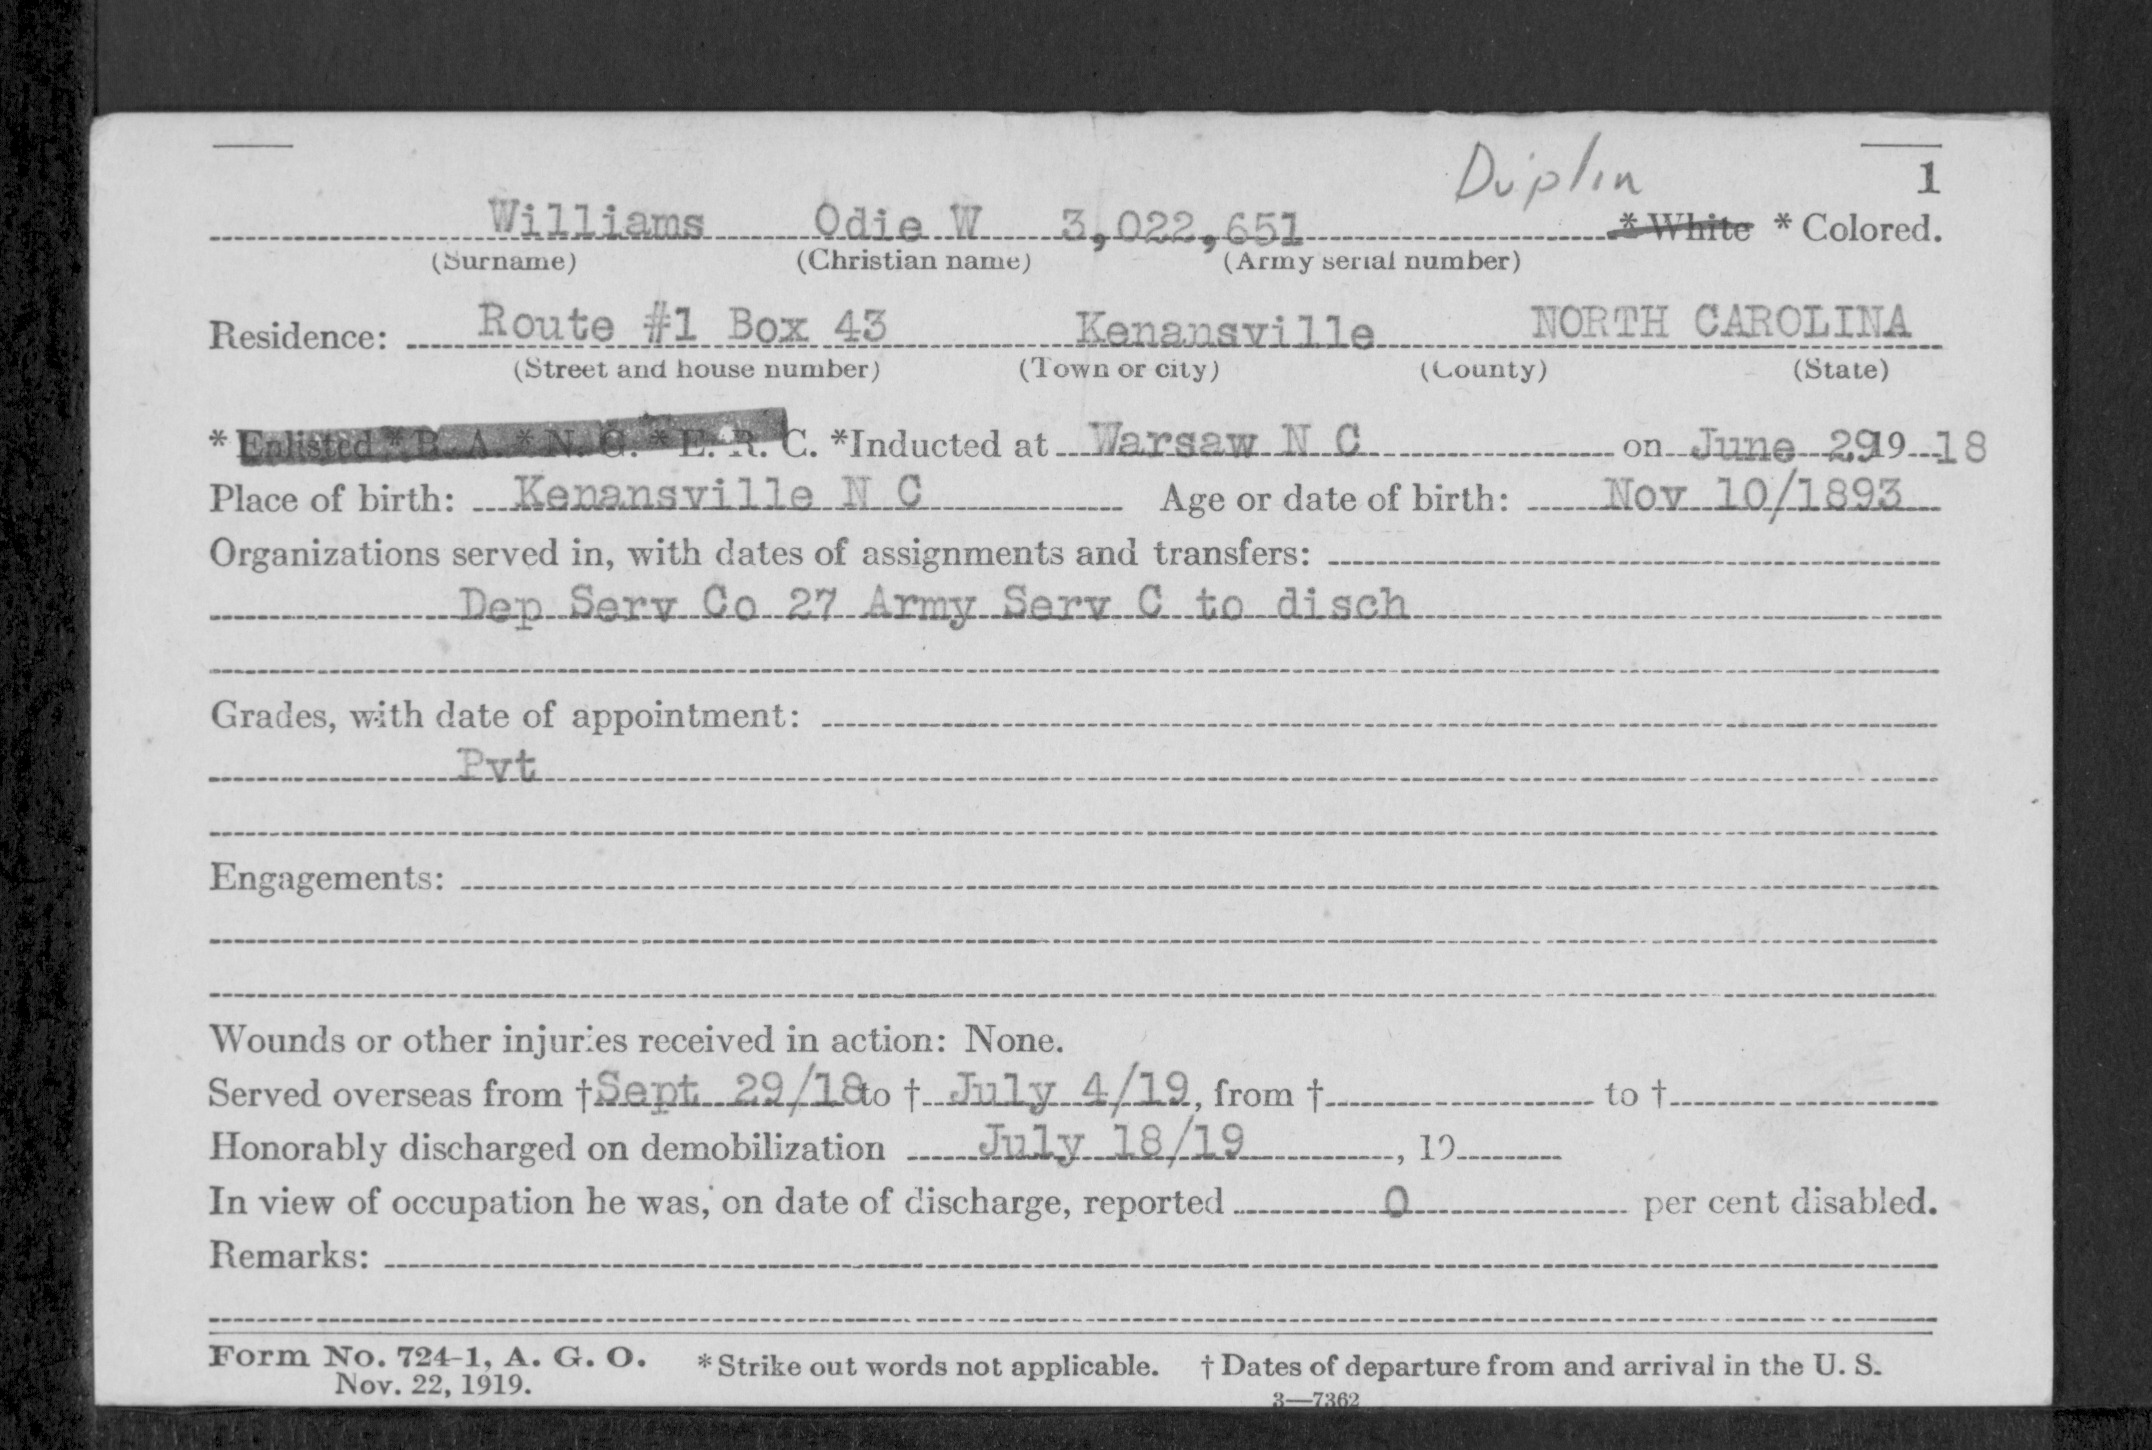 Duplin 1
Williams Odie W 3,022,651 * White * Colored.
(Surname) (Christian name) (Army serial number)
Residence: Route #1 Box 43 Kenansville NORTH CAROLINA
(Street and house number) (Town or city) (County) (State)
* Enlisted * R. A. * N. G. * E. R. C. *Inducted at Warsaw N C on June 29 19 18
Place of birth: Kenansville N C Age or date of birth: Nov 10/1893
Organizations served in, with dates of assignments and transfers:
Dep Serv Co 27 Army Serv C to disch
Grades, with date of appointment:
Pvt
Engagements:
Wounds or other injuries received in action: None.
Served overseas from † Sept 29/18 to † July 4/19, from † to †
Honorably discharged on demobilization July 18/19, 19
In view of occupation he was, on date of discharge, reported 0 per cent disabled.
Remarks:
Form No. 724-1, A. G. O. * Strike out words not applicable. † Dates of departure from and arrival in the U. S.
Nov. 22, 1919.
3—7362